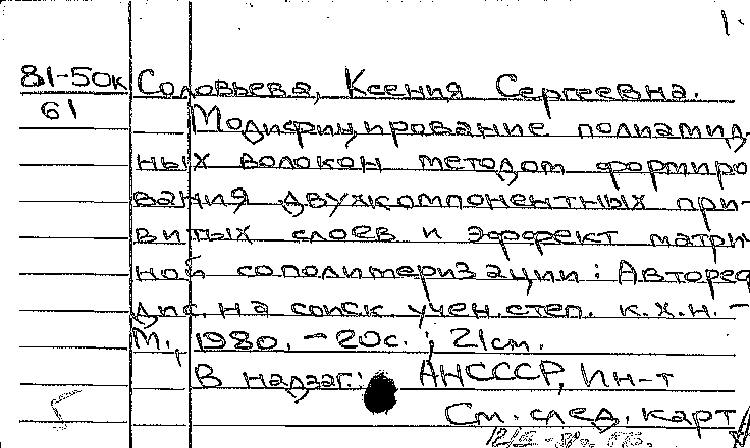 1.
81-50к Соловьева, Ксения Сергеевна.
61 Модифицирование полиамид-
ных волокон методом формиро
вания двухкомпонентных при-
витых слоев и эффект матрич
ной сополимеризации: Автореф
дис. на соиск. учен. степ. к.х.н. -
М., 1980. - 20с.; 21см.
В надзаг.: АНСССР, Ин-т
См. след. карт